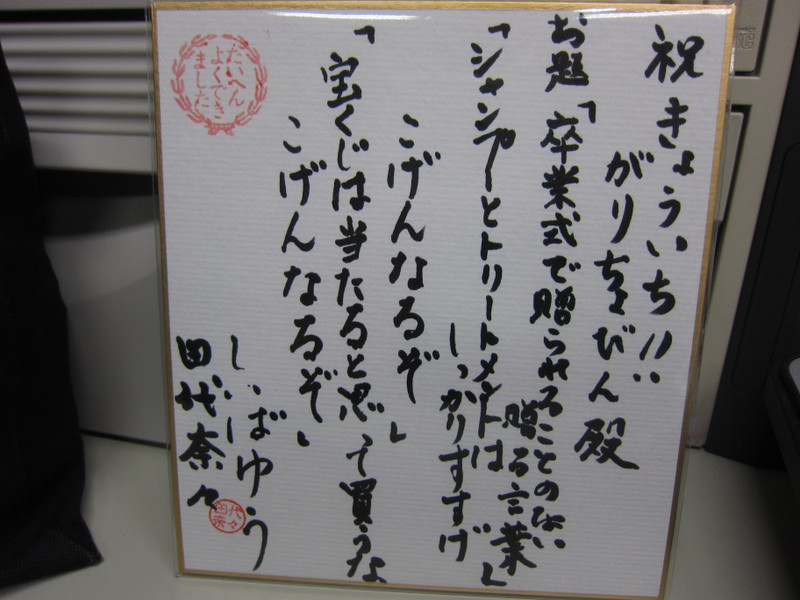 祝きょういち!!
がりちゃびん殿
お題「卒業式で贈られることのない
贈る言葉」
「シャンプーとトリートメントは
しっかりすすげ
こげんなるぞ」
「宝くじは当たると思って買うな
こげんなるぞ」
しいばゆう
田代奈々
田代奈々
たいへん
よくでき
ました